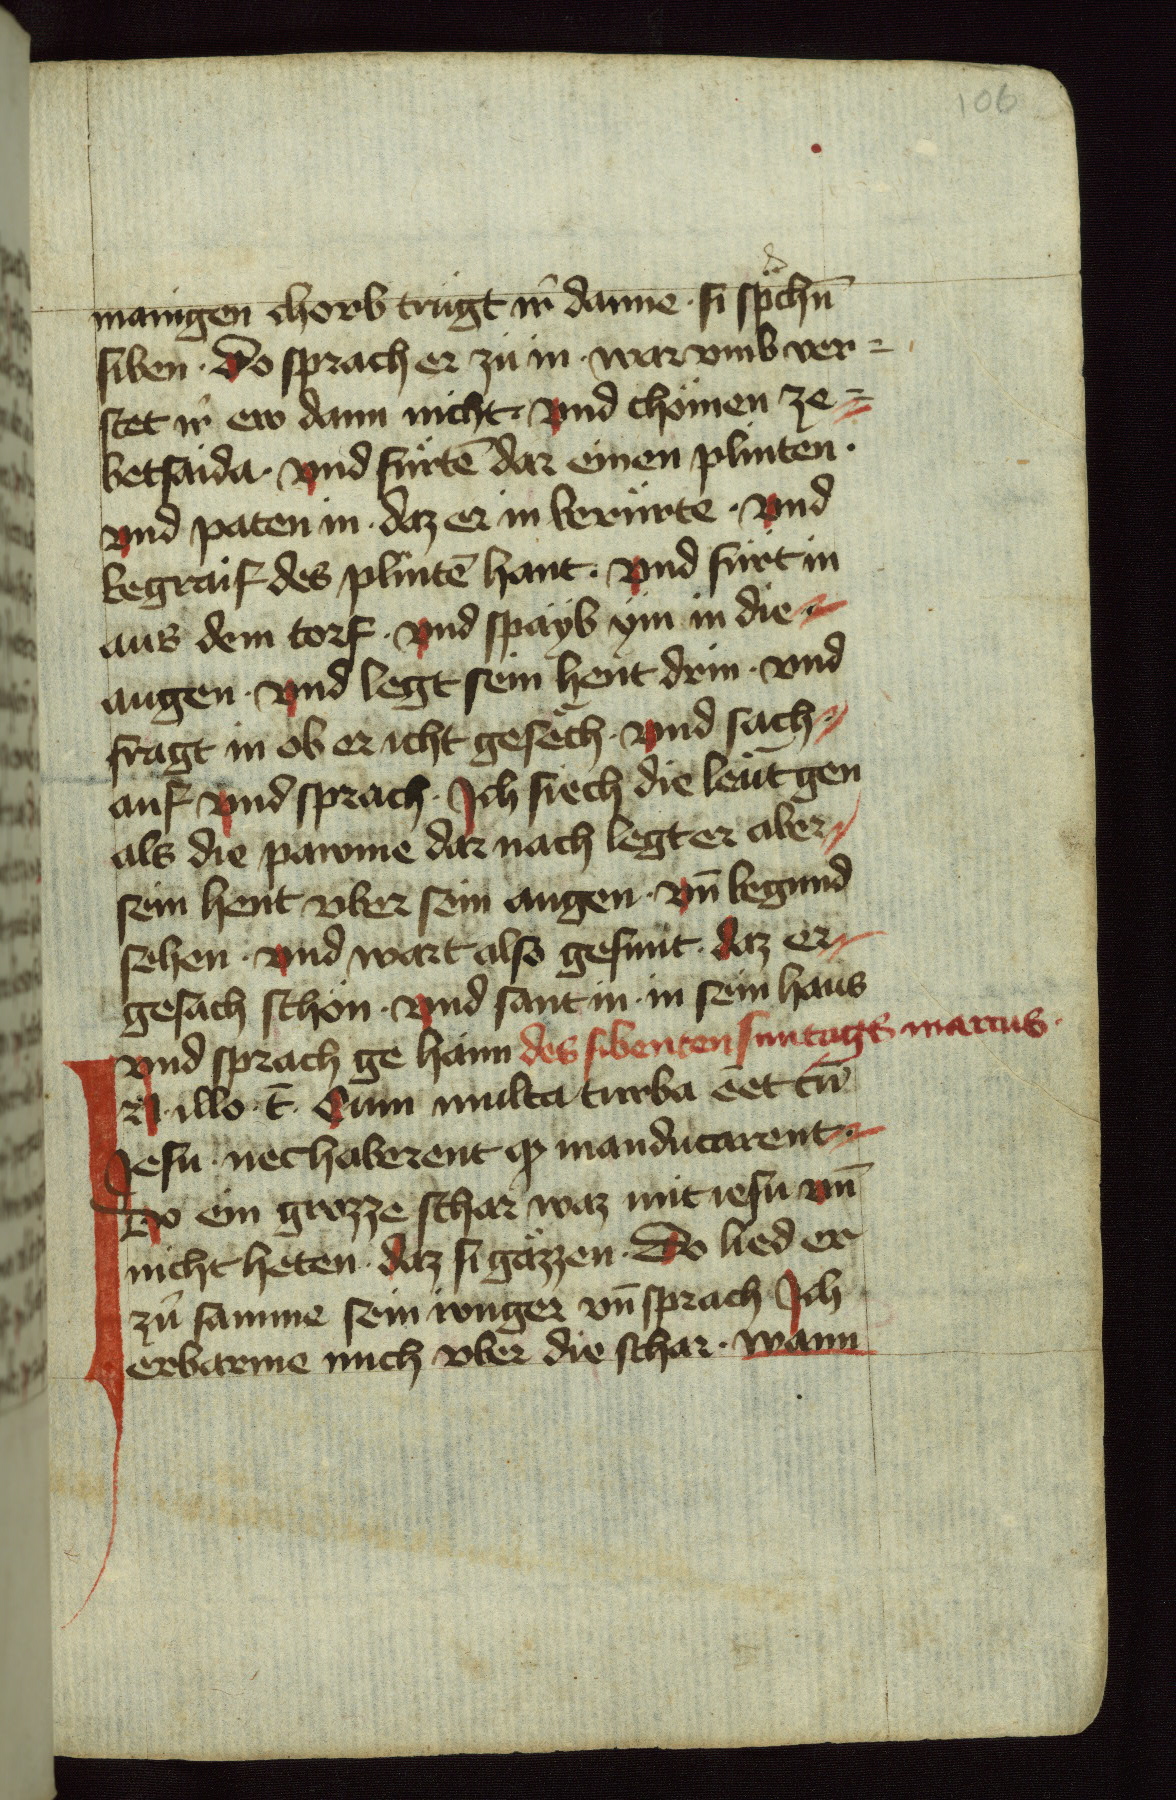 106
mainigen chorb trugt ir̄ danne · si spͣchn̄
siben · Do sprach er zů in · war vmb ver=
stet ir̄ ew dann nicht · vnd chömen ze=
betsaida · vnd fůrtē dar einen plinten ·
vnd paten in · daz er in berůrte · vnd
begraif des plintē hant · vnd fůrt in
aus dem torf · vnd spayb ym in die
augen · vnd legt sein hent drin · vnd
fragt in ob er icht gesëch · vnd sach
auf vnd sprach · Ich siech die leüt gen
als die pawme dar nach legt er aber
sein hent vber sein augen · vn̄ begund
sehen · vnd wart also gesunt · daz er
gesach schön · vnd sant in · in sein haus
vnd sprach ge haim des sibenten suntags marcus ·
In · illo · t̄ · Cum multa turba eēt cū
Jesu · nec haberent qͦ manducarent ·
Do ein grozze schar waz mit iesu vn̄
nicht heten · daz si gäzzen · Do lied er
zů samme sein iunger vn̄ sprach Ich
erbarme mich vber die schar · wann